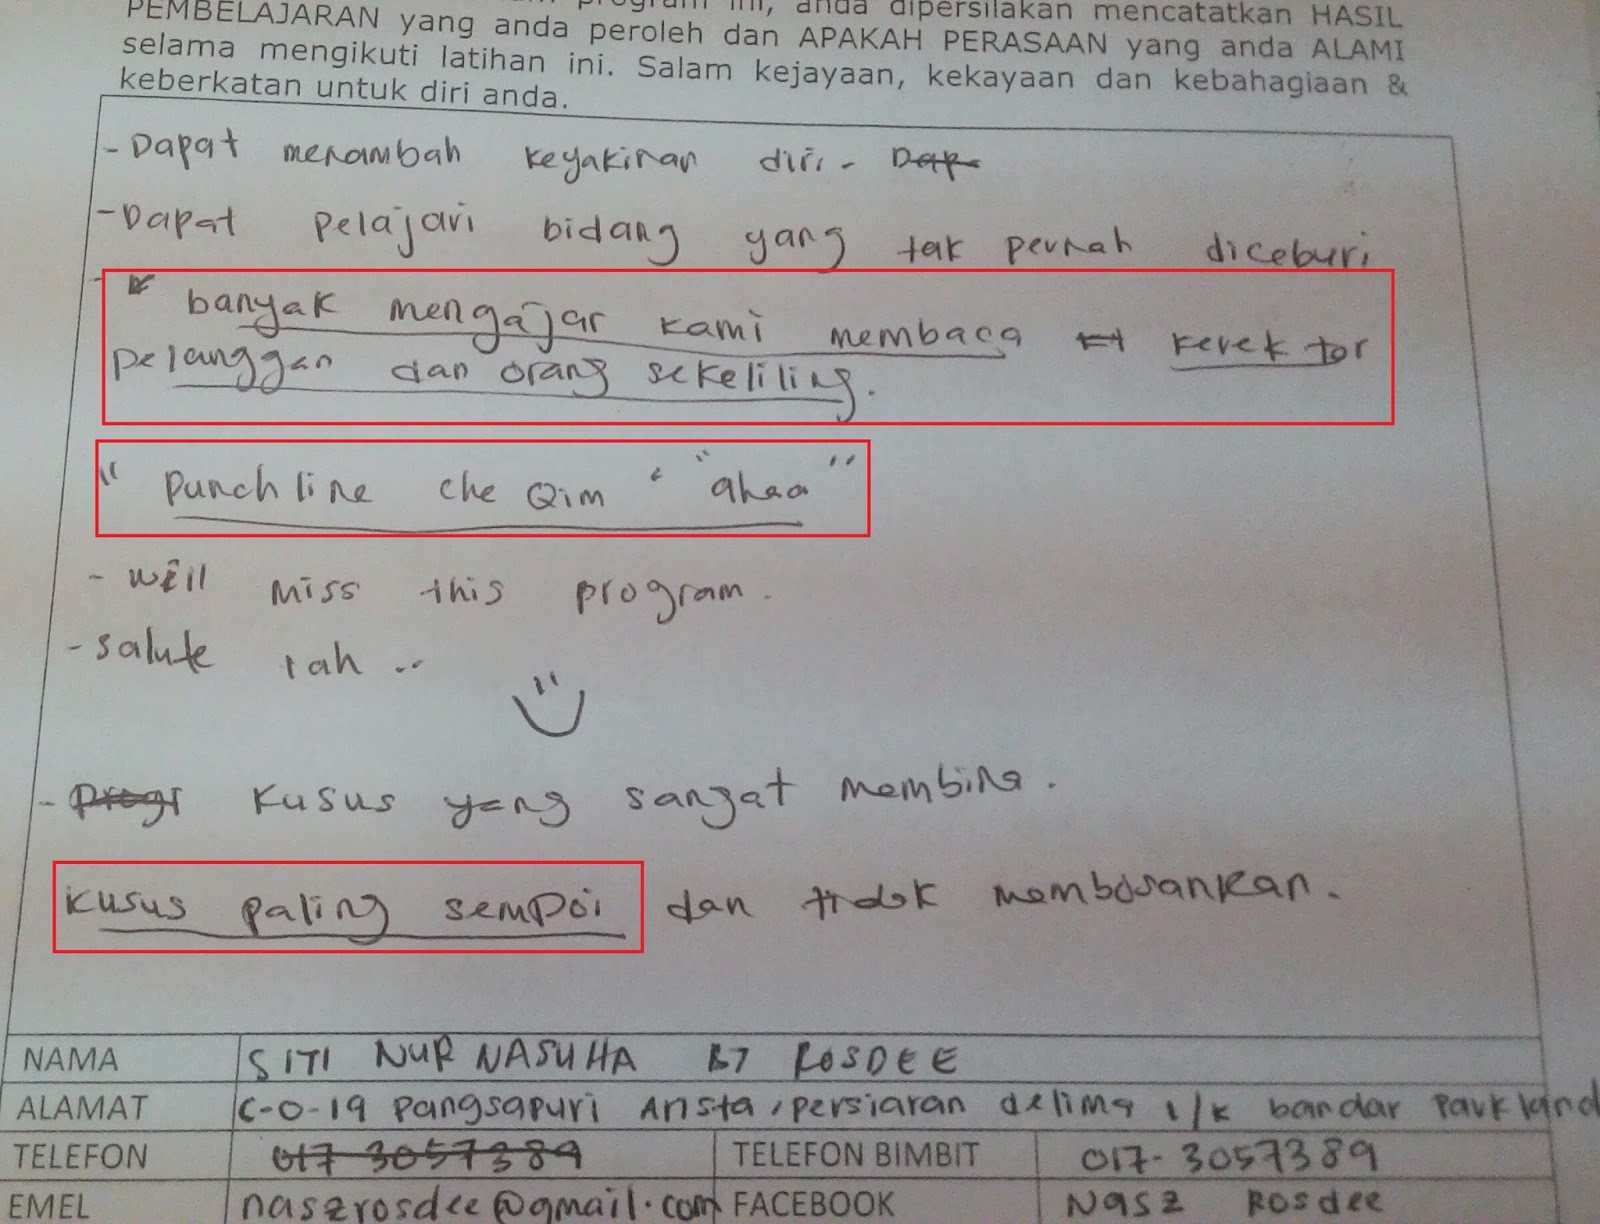 program ini, anda dipersilakan mencatatkan HASIL
PEMBELAJARAN yang anda peroleh dan APAKAH PERASAAN yang anda ALAMI
selama mengikuti latihan ini. Salam kejayaan, kekayaan dan kebahagiaan &
keberkatan untuk diri anda.
- Dapat menambah keyakinan diri - Dap
- Dapat pelajari bidang yang tak pernah diceburi
- banyak mengajar kami membaca kerektor
pelanggan dan orang sekeliling.
" Punchline che Qim " "ahaa"
- will miss this program.
- salute lah ..
- Progr Kusus yang sangat membina.
Kusus paling sempoi dan tidak membosankan.
NAMA SITI NUR NASUHA BT ROSDEE
ALAMAT C-0-19 Pangsapuri Arista, persiaran delima 1/K bandar Parkland
TELEFON 017 3057389 TELEFON BIMBIT 017-3057389
EMEL naszrosdee@gmail.com FACEBOOK Nasz Rosdee